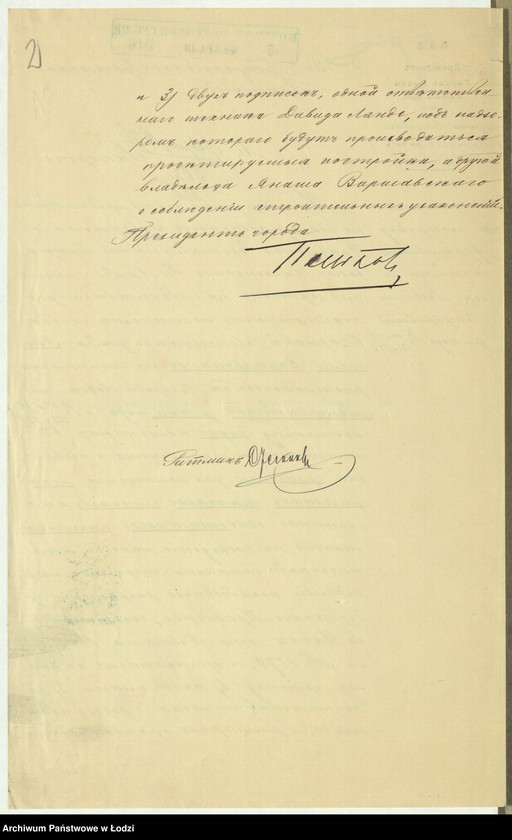 2
и 3/ двухъ подписокъ, одной ответствен
наго техника Давида Ланде, подъ надзо-
ромъ котораго будутъ производиться
проектируемыя постройки, а другой
владельца Янаша Варшавскаго
о соблюденіи строительныхъ узаконеній.
Президентъ города
Пеньковъ
Archiwum Państwowe w Łodzi